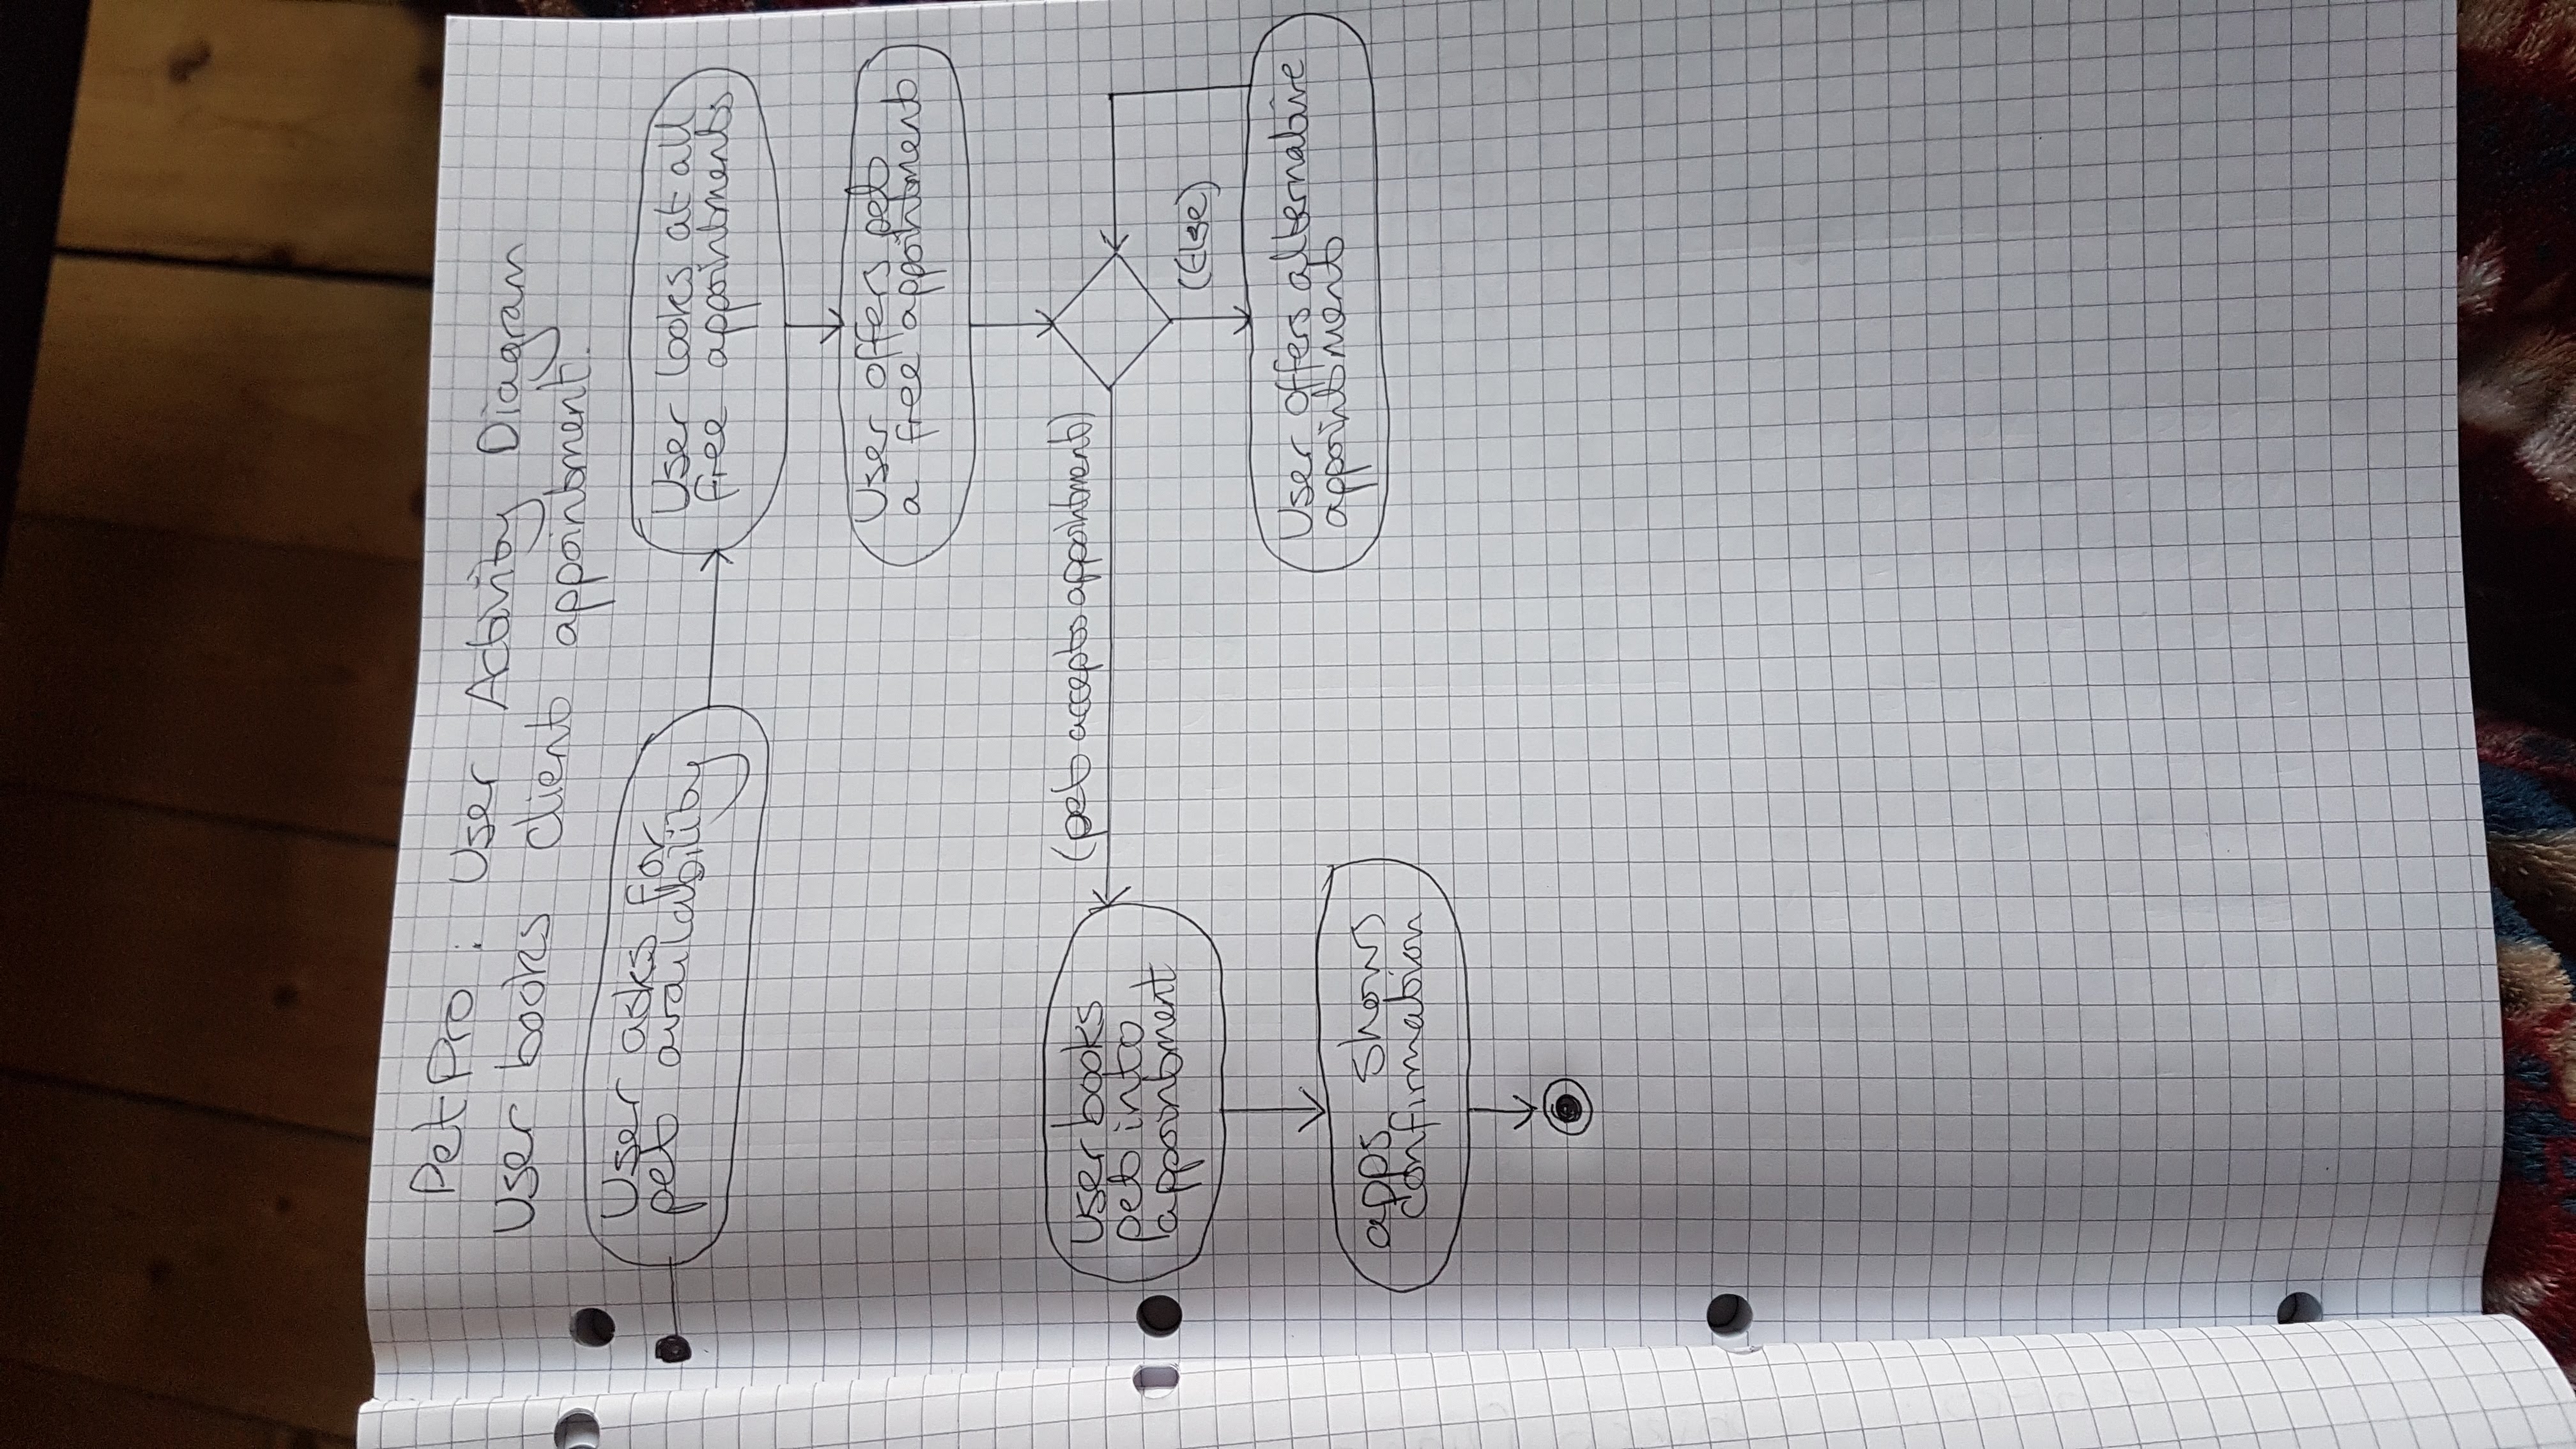 PetPro : User Activity Diagram
User books client appointment.
User asks for
pet availability
User looks at all
free appointments
User offers pet
a free appointment
(pet accepts appointment)
User books
pet into
appointment
(Else)
User offers alternative
appointment
apps shows
confirmation